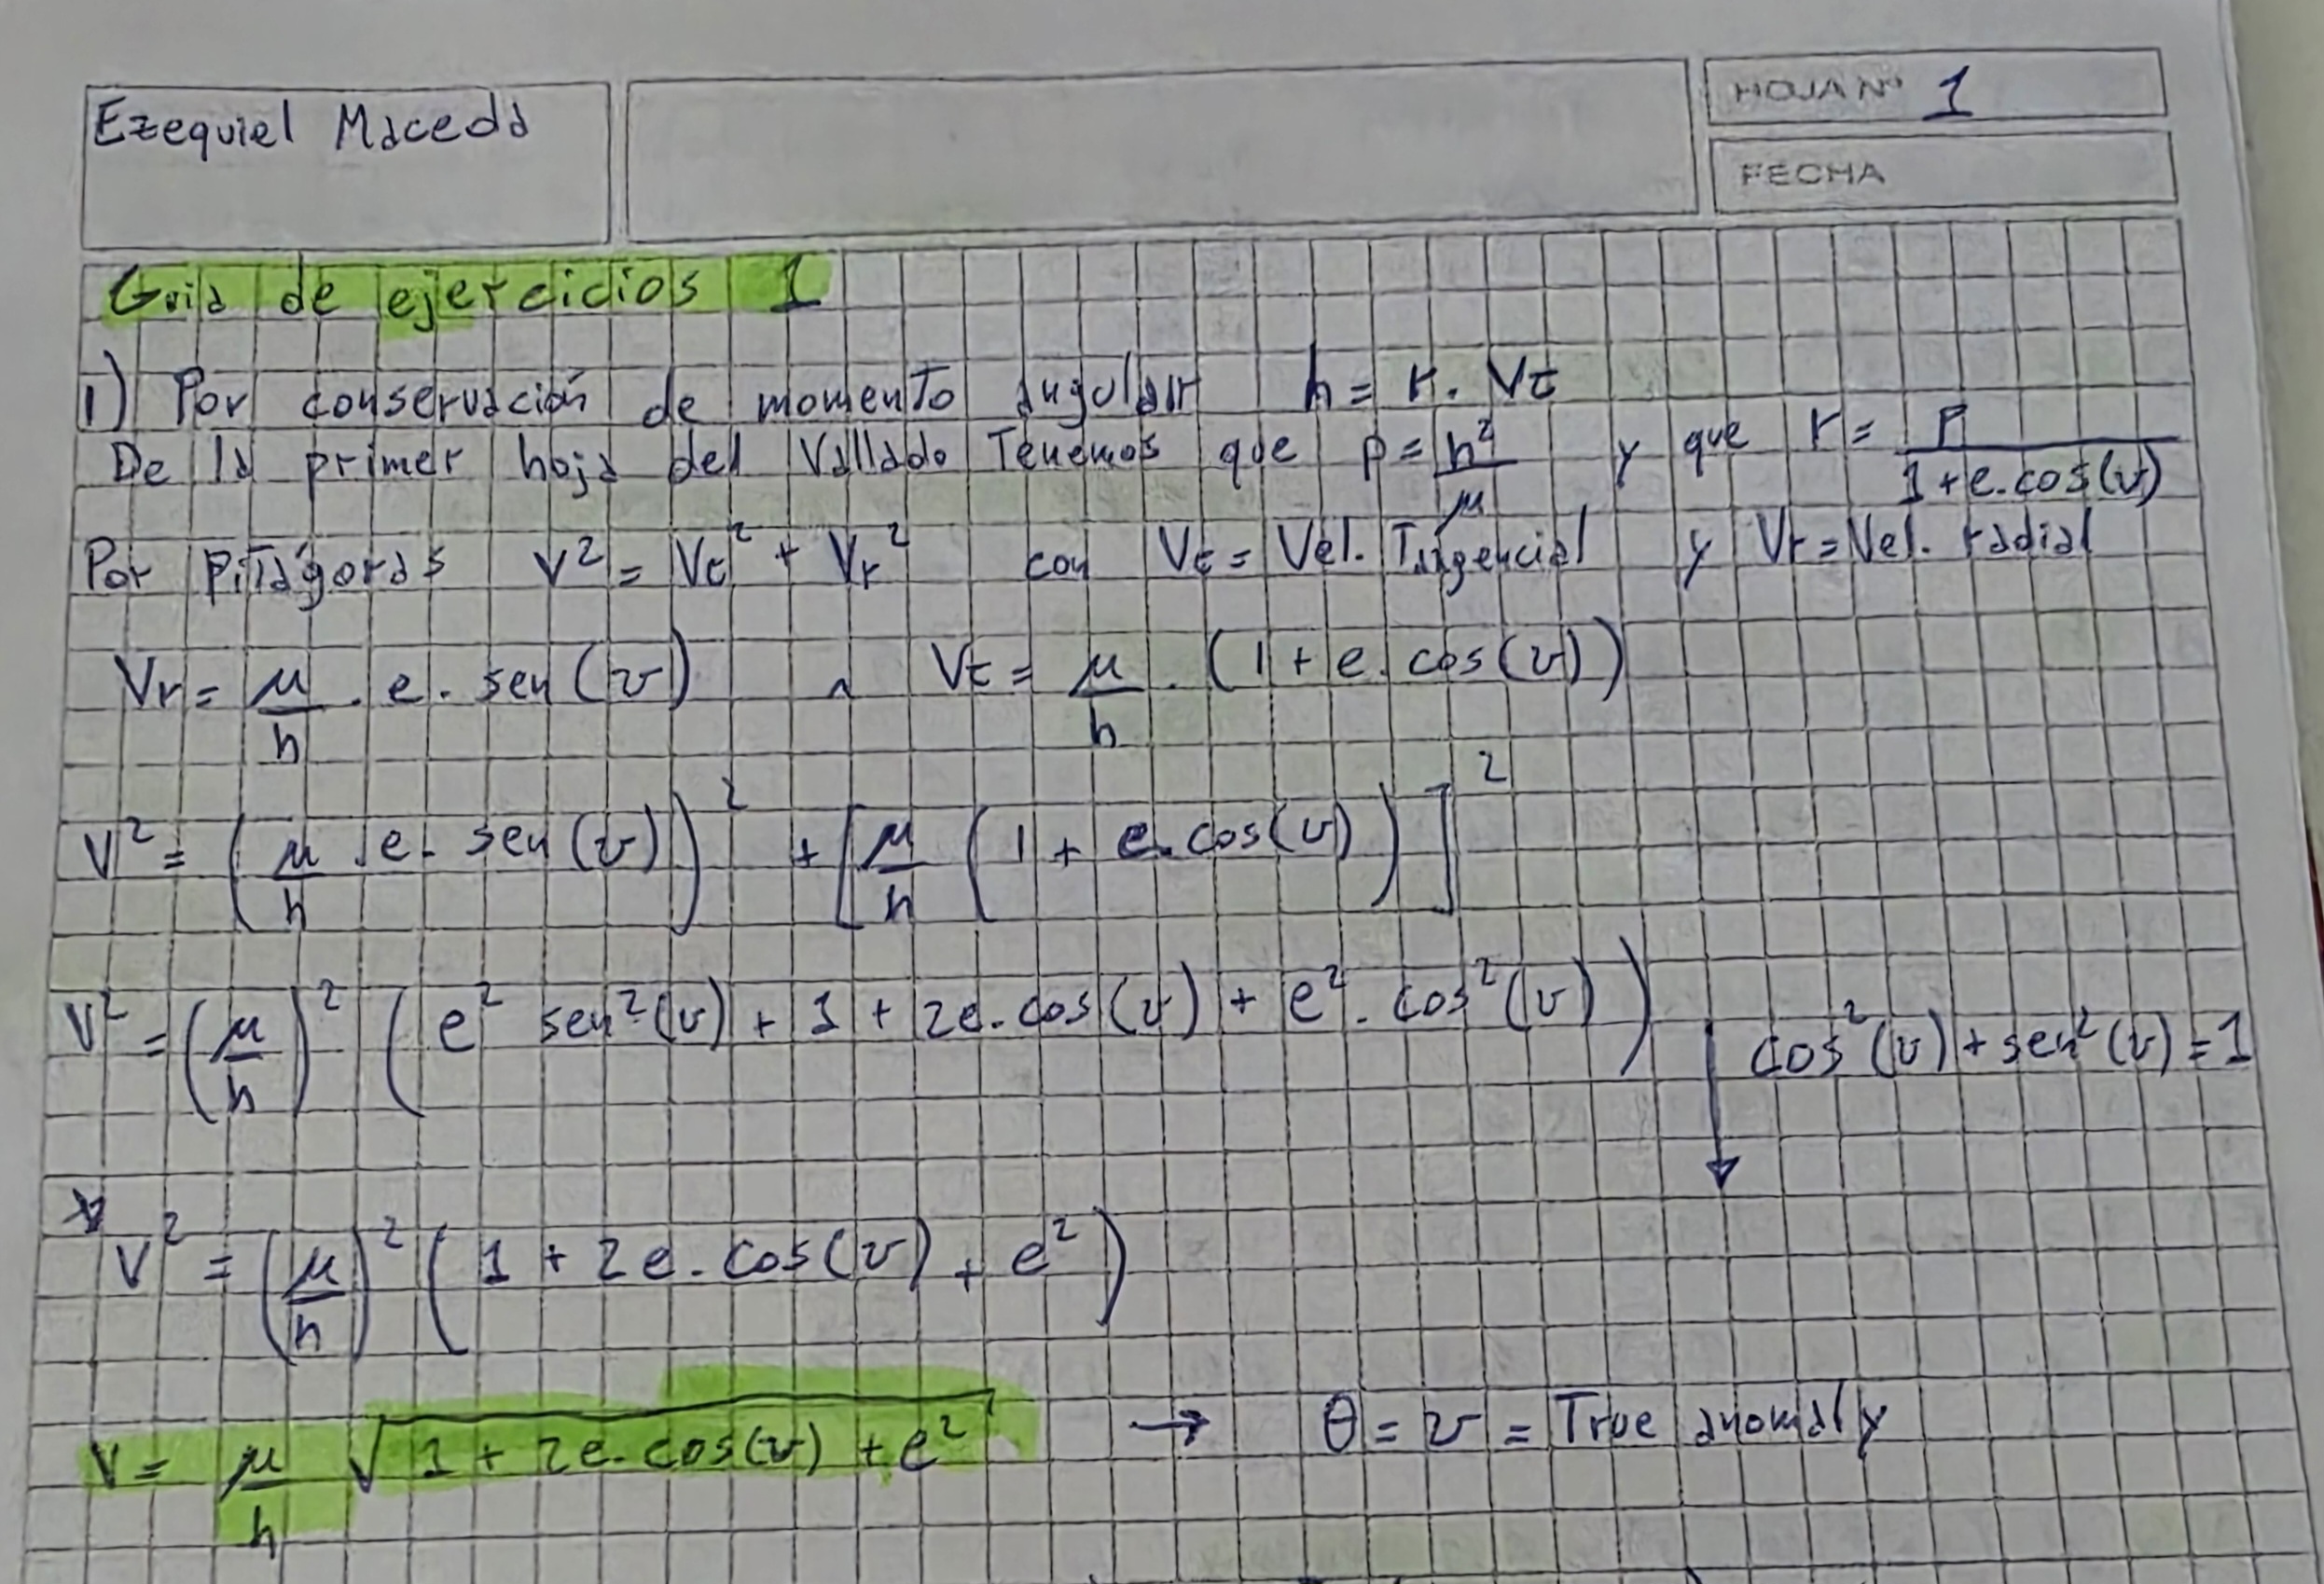 Ezequiel Maceda
HOJA Nº 1
FECHA
Guia de ejercicios 1
1) Por conservación de momento angular h = r. Vt
De la primer hoja del Vallado Tenemos que p = h²/μ y que r = p/(1+e.cos(ν))
Por pitágoras V² = Vt² + Vr² con Vt = Vel. Tangencial y Vr = Vel. radial
Vr = μ/h . e . sen(ν) ∧ Vt = μ/h . (1 + e. cos(ν))
V² = (μ/h . e . sen(ν))² + [μ/h (1 + e.cos(ν))]²
V² = (μ/h)² (e² sen²(ν) + 1 + 2e.cos(ν) + e². cos²(ν)) ↓ cos²(ν) + sen²(ν) = 1
V² = (μ/h)² (1 + 2e. cos(ν) + e²)
V = μ/h √(1 + 2e. cos(ν) + e²) → θ = ν = True anomaly